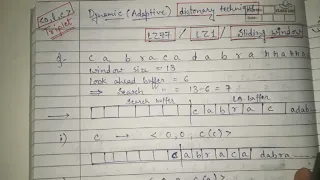 <o, l, c>
Triplet
Dynamic (Adaptive) distonary technique
LZ77 / LZ1 / Sliding window
Q- c a b r a c a d a b r a
window size = 13
Look ahead Buffer = 6
⇒ Search " = 13-6 = 7
Search buffer LA buffer
→ c a b r a c adab
i) c → <0,0, c(c)>
c a b r a c a dabra